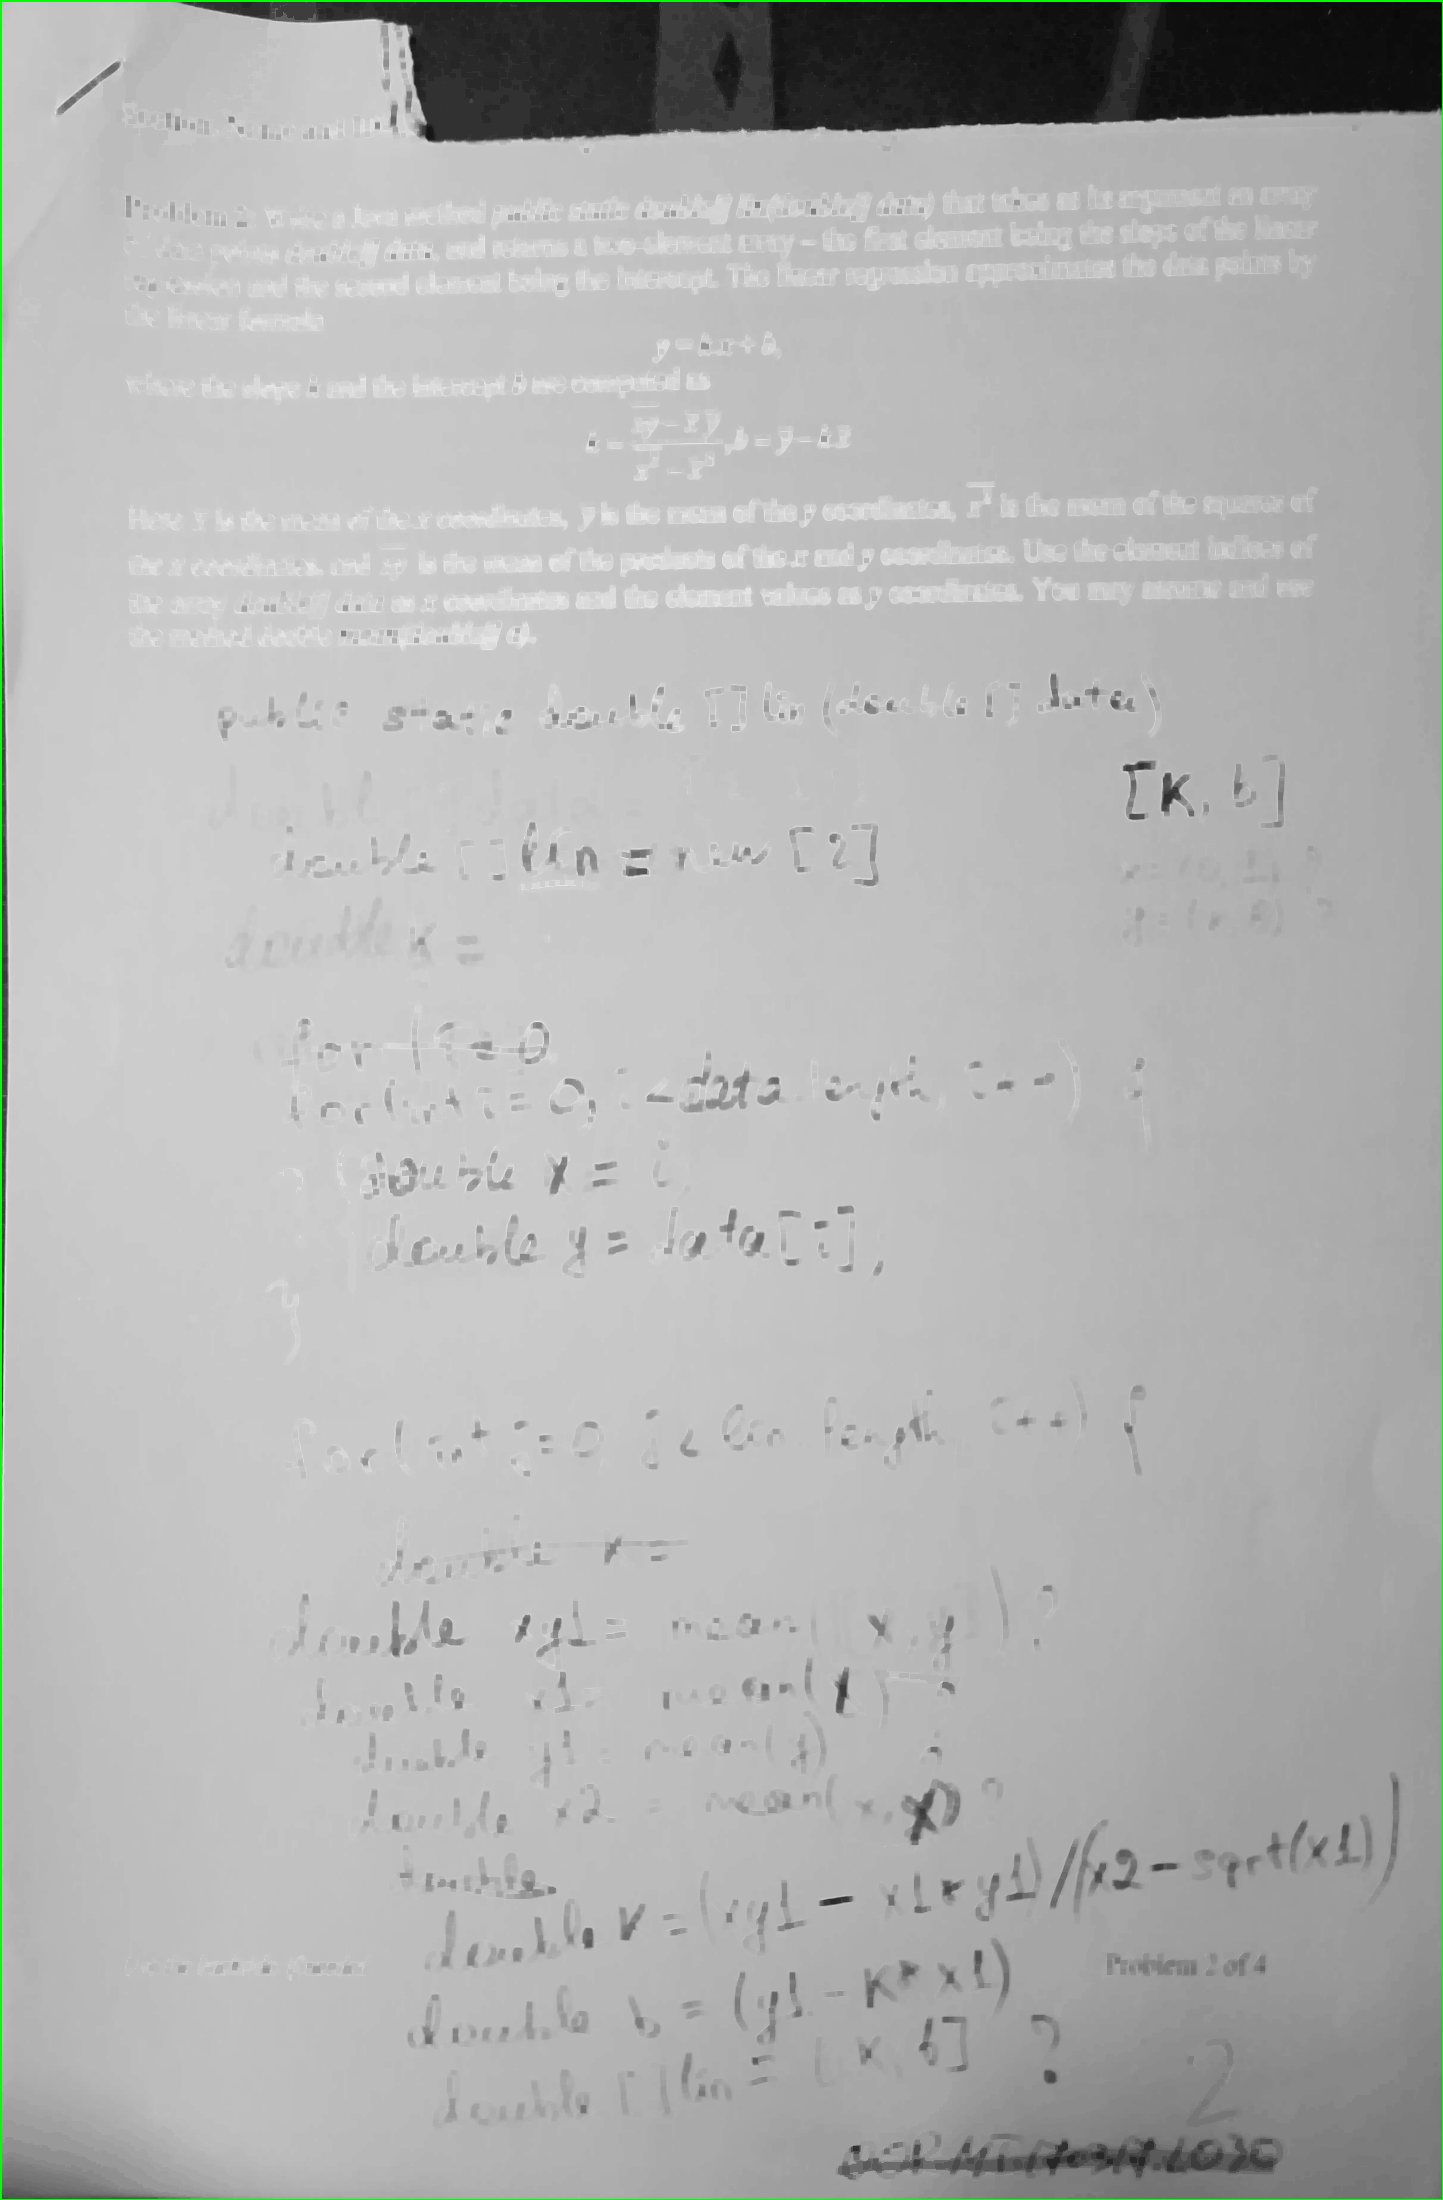 Problem 2. Write a Java method public static double[] lin(double[] data) that takes as its argument an array
double[] data, and returns a two-element array – the first element being the slope of the linear
regression and the second element being the intercept. The linear regression approximates the data points by
the linear formula
y = k x + b,
where the slope k and the intercept b are computed as
k = (xy − x y) / (x² − x²), b = y − k x
Here x is the mean of the x coordinates, y is the mean of the y coordinates, x² is the mean of the squares of
the x coordinates, and xy is the mean of the products of the x and y coordinates. Use the element indices of
the array double[] data as x coordinates and the element values as y coordinates. You may assume and use
the method double mean(double[] a).
public static double [] lin (double [] data)
[K, b]
double [] lin = new [2]
double K =
for (i = 0
for(int i = 0; i < data.length, i++) {
double x = i
double y = data[i],
}
for(int j=0, j < lin length, i++) {
double x =
double xy1 = mean([x,y]) ?
double x1 = mean(x) ?
double y1 = mean(y) ?
double x2 = mean(x,x) ?
double
double K = (xy1 – x1 * y1)/(x2 – sqrt(x1))
Problem 2 of 4
double b = (y1 – K * x1)
double [] lin = [K, b] ?
2